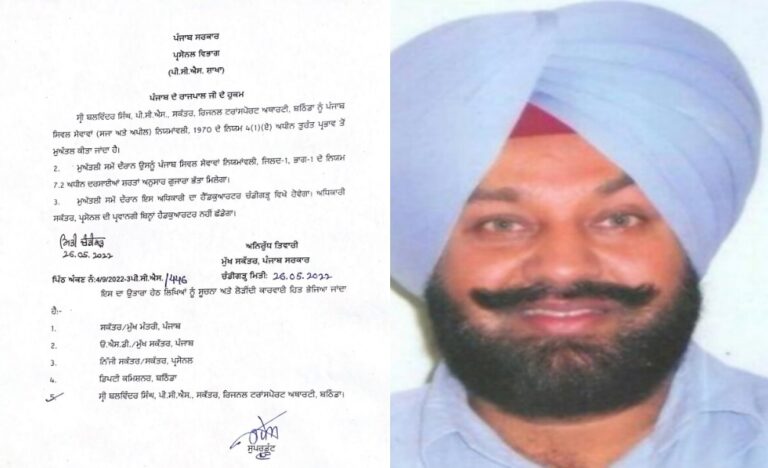 ਪੰਜਾਬ ਸਰਕਾਰ
ਪ੍ਰਸੋਨਲ ਵਿਭਾਗ
(ਪੀ.ਸੀ.ਐਸ. ਸ਼ਾਖਾ)
ਪੰਜਾਬ ਦੇ ਰਾਜਪਾਲ ਜੀ ਦੇ ਹੁਕਮ
ਸ੍ਰੀ ਬਲਵਿੰਦਰ ਸਿੰਘ, ਪੀ.ਸੀ.ਐਸ., ਸਕੱਤਰ, ਰਿਜਨਲ ਟਰਾਂਸਪੋਰਟ ਅਥਾਰਟੀ, ਬਠਿੰਡਾ ਨੂੰ ਪੰਜਾਬ
ਸਿਵਲ ਸੇਵਾਵਾਂ (ਸਜਾ ਅਤੇ ਅਪੀਲ) ਨਿਯਮਾਂਵਲੀ, 1970 ਦੇ ਨਿਯਮ 4(1)(ਏ) ਅਧੀਨ ਤੁਰੰਤ ਪ੍ਰਭਾਵ ਤੋਂ
ਮੁਅੱਤਲ ਕੀਤਾ ਜਾਂਦਾ ਹੈ।
2. ਮੁਅੱਤਲੀ ਸਮੇਂ ਦੌਰਾਨ ਉਸਨੂੰ ਪੰਜਾਬ ਸਿਵਲ ਸੇਵਾਵਾਂ ਨਿਯਮਾਂਵਲੀ, ਜਿਲਦ-1, ਭਾਗ-1 ਦੇ ਨਿਯਮ
7.2 ਅਧੀਨ ਦਰਸਾਈਆਂ ਸ਼ਰਤਾਂ ਅਨੁਸਾਰ ਗੁਜਾਰਾ ਭੱਤਾ ਮਿਲੇਗਾ।
3. ਮੁਅੱਤਲੀ ਸਮੇਂ ਦੌਰਾਨ ਇਸ ਅਧਿਕਾਰੀ ਦਾ ਹੈੱਡਕੁਆਰਟਰ ਚੰਡੀਗੜ੍ਹ ਵਿਖੇ ਹੋਵੇਗਾ। ਅਧਿਕਾਰੀ
ਸਕੱਤਰ, ਪ੍ਰਸੋਨਲ ਦੀ ਪ੍ਰਵਾਨਗੀ ਬਿਨ੍ਹਾਂ ਹੈਡਕੁਆਰਟਰ ਨਹੀ ਛੱਡੇਗਾ।
ਮਿਤੀ ਚੰਡੀਗੜ੍ਹ
26.05.2022
ਅਨਿਰੁੱਧ ਤਿਵਾਰੀ
ਮੁੱਖ ਸਕੱਤਰ, ਪੰਜਾਬ ਸਰਕਾਰ
ਪਿੱਠ ਅੰਕਣ ਨੰ:4/9/2022-3ਪੀ.ਸੀ.ਐਸ./446 ਚੰਡੀਗੜ੍ਹ ਮਿਤੀ: 26.05.2022
ਇਸ ਦਾ ਉਤਾਰਾ ਹੇਠ ਲਿਖਿਆਂ ਨੂੰ ਸੂਚਨਾ ਅਤੇ ਲੋੜੀਂਦੀ ਕਾਰਵਾਈ ਹਿਤ ਭੇਜਿਆ ਜਾਂਦਾ
ਹੈ:-
1. ਸਕੱਤਰ/ਮੁੱਖ ਮੰਤਰੀ, ਪੰਜਾਬ
2. ਓ.ਐਸ.ਡੀ./ਮੁੱਖ ਸਕੱਤਰ, ਪੰਜਾਬ
3. ਨਿੱਜੀ ਸਕੱਤਰ/ਸਕੱਤਰ, ਪ੍ਰਸੋਨਲ
4. ਡਿਪਟੀ ਕਮਿਸ਼ਨਰ, ਬਠਿੰਡਾ
5 ਸ੍ਰੀ ਬਲਵਿੰਦਰ ਸਿੰਘ, ਪੀ.ਸੀ.ਐਸ., ਸਕੱਤਰ, ਰਿਜਨਲ ਟਰਾਂਸਪੋਰਟ ਅਥਾਰਟੀ, ਬਠਿੰਡਾ।
ਸੁਪਰਡੰਟ